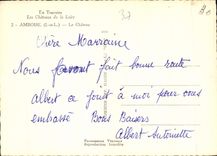 En Touraine
Les Châteaux de la Loire
2 - AMBOISE (I.-et-L.) — Le Château
37
Chère Marraine
Nous avont fait bonne route
Albert ce joint à moi pour vous
embrassé Bons Baisers
Albert Antoinette
Reproduction Interdite